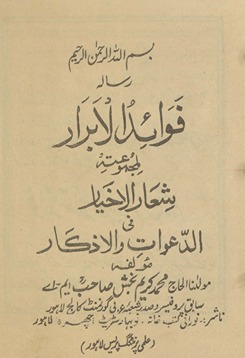 بسم اللہ الرحمٰن الرحیم
رسالہ
فَوَائِدُ الْاَبرَار
لمجموعتہ
شِعَارُ الاخیار
فی
الدّعوات والاذکار
مؤلفہ
مولٰنا الحاج محمد کریم بخش صاحب ایم-اے
سابق پروفیسر و صدر شعبۂ عربی گورنمنٹ کالج لاہور
ناشر: نورانی کتب خانہ۔ اچھرہ لاہور
(علمی پرنٹنگ پریس لاہور)